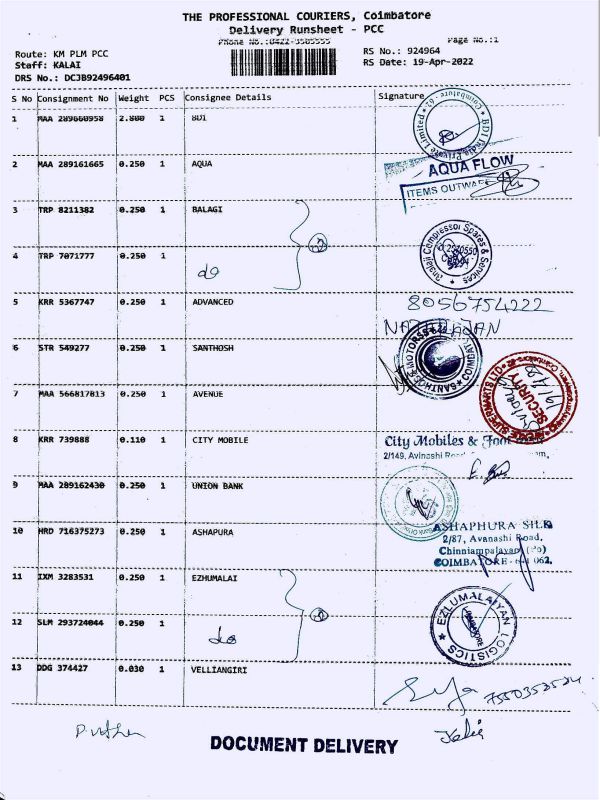 THE PROFESSIONAL COURIERS, Coimbatore
Delivery Runsheet - PCC
Phone No.:0422-3585555 Page No.:1
Route: KM PLM PCC RS No.: 924964
Staff: KALAI RS Date: 19-Apr-2022
DRS No.: DCJB92496401
S No Consignment No Weight PCS Consignee Details Signature
1 MAA 289660958 2.800 1 BDI
2 MAA 289161665 0.250 1 AQUA
AQUA FLOW
ITEMS OUTWARD
3 TRP 8211382 0.250 1 BALAGI
4 TRP 7071777 0.250 1 do
Compressor Spares & Services
5 KRR 5367747 0.250 1 ADVANCED 8056754222
NATARAJAN
6 STR 549277 0.250 1 SANTHOSH
7 MAA 566817813 0.250 1 AVENUE
AVENUE SUPERMARTS LTD
SECURITY
8 KRR 739888 0.110 1 CITY MOBILE City Mobiles &
2/149, Avinashi
9 MAA 289162430 0.250 1 UNION BANK
10 HRD 716375273 0.250 1 ASHAPURA ASHAPHURA SILK
2/87, Avanashi Road,
Chinniampalayam (Po)
COIMBATORE - 641 062.
11 IXM 3283531 0.250 1 EZHUMALAI
12 SLM 293724044 0.250 1 do
EZLUMALAIYAN LOGISTICS
13 DDG 374427 0.030 1 VELLIANGIRI
DOCUMENT DELIVERY